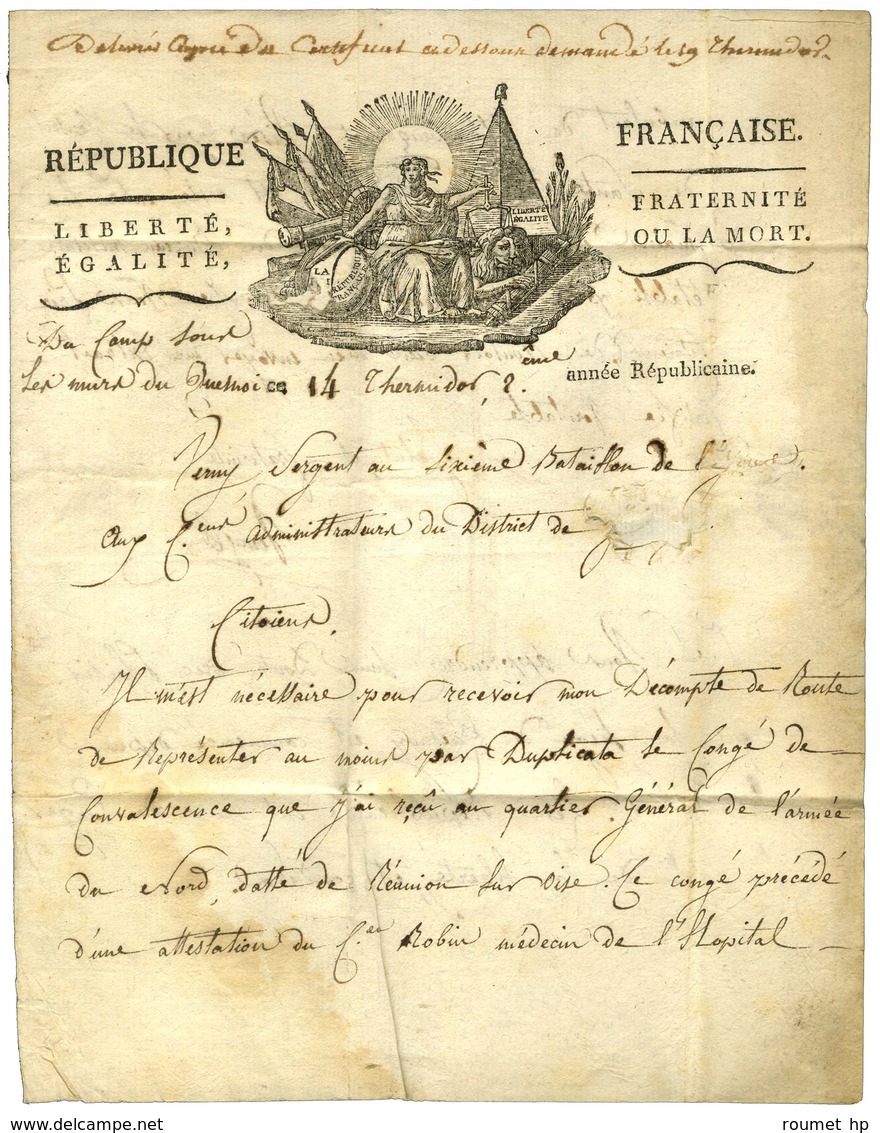 Délivré Copie du Certificat cy dessous demandé le 19 Thermidor.
RÉPUBLIQUE FRANÇAISE.
LIBERTÉ, ÉGALITÉ,
FRATERNITÉ OU LA MORT.
LIBERTÉ ÉGALITÉ
LA RÉPUBLIQUE FRANÇAISE
Du Camp sous
les murs du Quesnoi ce 14 Thermidor, 2.ème année Républicaine.
Sergent au Sixième Bataillon de
aux C.ens Administrateurs du District de
Citoiens,
Il m'est nécessaire pour recevoir mon Décompte de Route
de Représenter au moins par Duplicata le Congé de
Convalescence que j'ai reçû au quartier Général de l'armée
du Nord, datté de Réunion sur Oise. Ce congé précédé
d'une attestation du C.en Robin médecin de l'Hopital
roumet hp